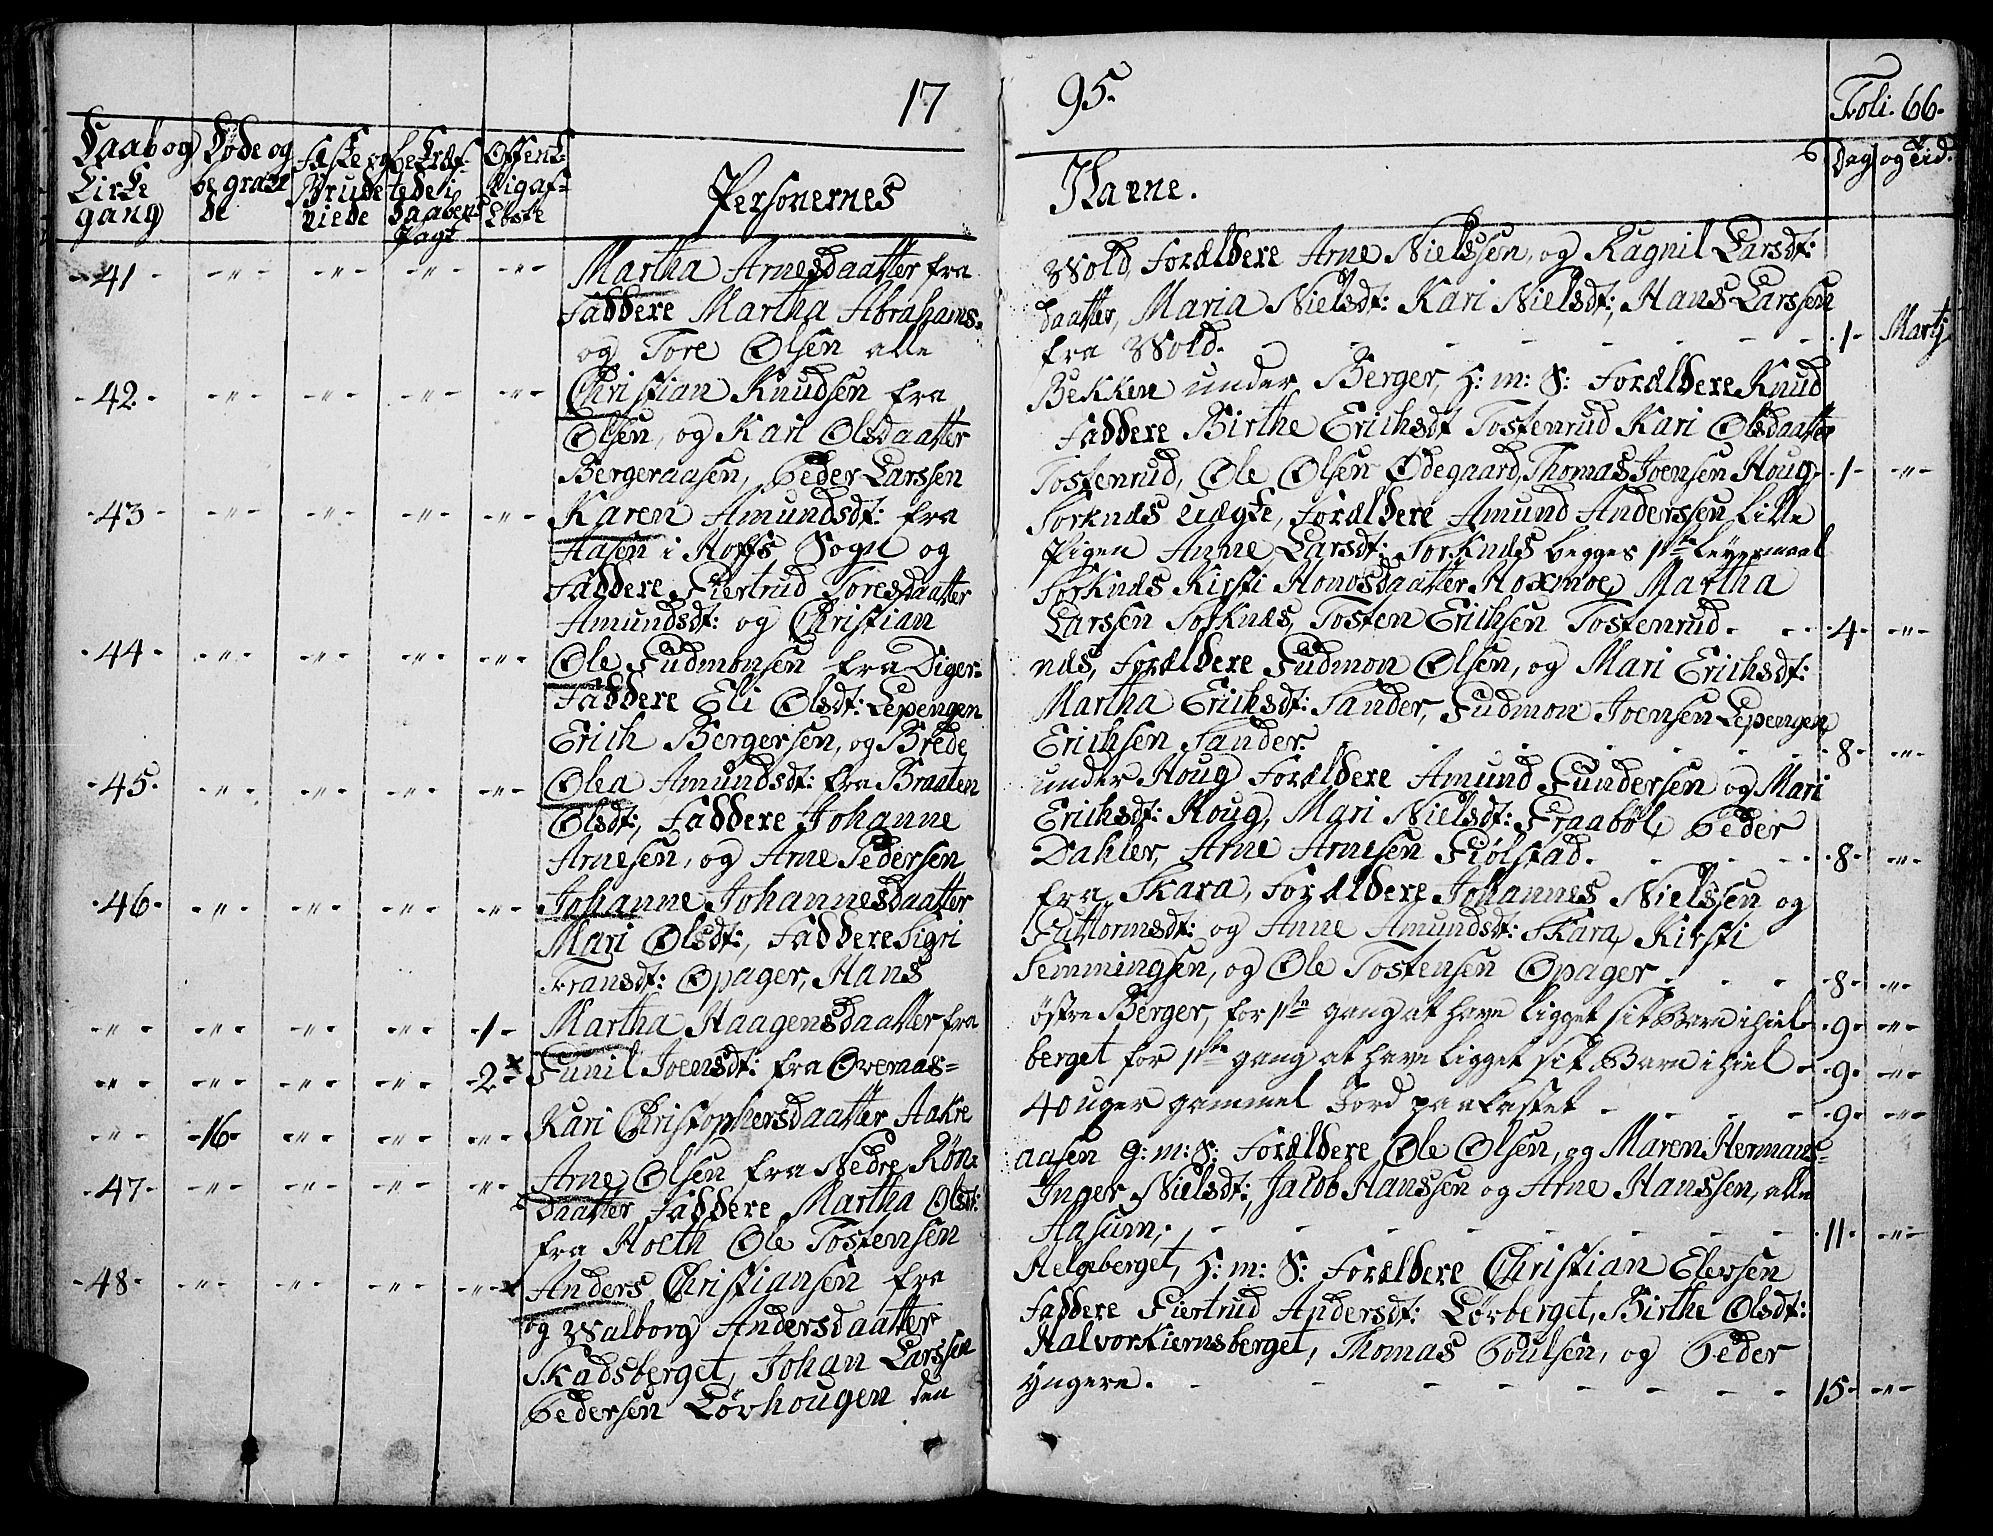 17 95. Foli. 66.
Daab og Kirke gang
Døde og begravede
Fæste og Brudeviede
bekræftede i Daabens Pagt
Offentlig afløste
Personernes Navne.
Dag og Tid.
-41- -"- -"- -"- -"- Martha Arnesdaatter fra Wold, Forældere Arne Nielssen, og Ragnil Larsdt:
Faddere Martha Abrahams- daatter, Maria Nielsdt: Kari Nielsdt:, Hans Larssen
og Tore Olsen alle fra Wold. - - - - - - -1- Martj
-42- -"- -"- -"- -"- Christian Knudsen fra Bekken under Berger, H: m: S: Forældere Knud
Olsen, og Kari Olsdaatter Faddere Birthe Erichsdt Tostenrud Kari Olsdaatter
Bergeraasen, Peder Larssen Tostenrud, Ole Olsen Ødegaard, Thomas Joensen Houg -1- -"-
-43- -"- -"- -"- -"- Karen Amundsdt: fra Sorknæs uægte, Forældere Amund Anderssen Lille
Aasen i Hoffs Sogn og Pigen Anne Larsdt: Sorknæs begges 1ste Leyermaal
Faddere Giertrud Toresdaatter Sorknæs Kirsti Monosdaatter Moxmoe, Martha
Amundsdt: og Christian Larssen Sorknæs, Tosten Erichsen Tostenrud. - - -4- -"-
-44- -"- -"- -"- -"- Ole Gudmonsen fra Diger- næs, Forældere Gudmon Olsen, og Mari Erichsdt:
Faddere Eli Olsdt: Lepengen Martha Erichsdt: Sander, Gudmon Joensen Lepengen,
Erich Bergersen, og Brede Erichsen Sander. - - - - - - -8- -"-
-45- -"- -"- -"- -"- Olea Amundsdt: fra Braaten under Houg Forældere Amund Gundersen og Mari
Olsdt:, Faddere Johanne Erichsdt: Houg, Mari Nielsdt: Fraabøl, Peder
Arnesen, og Arne Pedersen Dahler, Arne Arnesen Fiølstad. - - - -8- -"-
-46- -"- -"- -"- -"- Johanne Johannesdaatter fra Skara, Forældere Johannes Nielssen og
Mari Olsdt:, Faddere Sigri Guttormsdt: og Anne Amundsdt: Skara, Kirsti
Fransdt: Opager, Hans Semmingsen, og Ole Tostensen Opager. - - - -8- -"-
-"- -"- -"- -"- -1- Martha Haagensdaatter fra østre Berger, for 1ste gang at have ligget sit Barn ihiel -9- -"-
-"- -"- -"- -"- -2- Gunil Joensdt: fra Overnas= berget for 1ste gang at have ligget sit Barn ihiel -9- -"-
-"- -16- -"- -"- -"- Kari Christophersdaatter Aakre 40 uger gammel Jord paakastet - - - -9- -"-
-47- -"- -"- -"- -"- Arne Olsen fra Nedre Røn= aasen G: m: S: Forældere Ole Olsen, og Maren Hermans=
Daatter Faddere Martha Olsdt: Inger Nielsdt:, Jacob Hanssen og Arne Hanssen, alle
fra Hoeth Ole Tostensen Aasum; - - - - - - -11- -"-
-48- -"- -"- -"- -"- Anders Christiansen fra Helgeberget, H: m: S: Forældere Christian Elevsen
og Walborg Andersdaatter Faddere Giertrud Andersdt: Lørberget, Birthe Olsdt:
Skadsberget, Johan Larssen Halvorkiernsberget, Thomas Poulsen, og Peder
Pedersen Løvhougen den yngere. - - - - - - -15- -"-